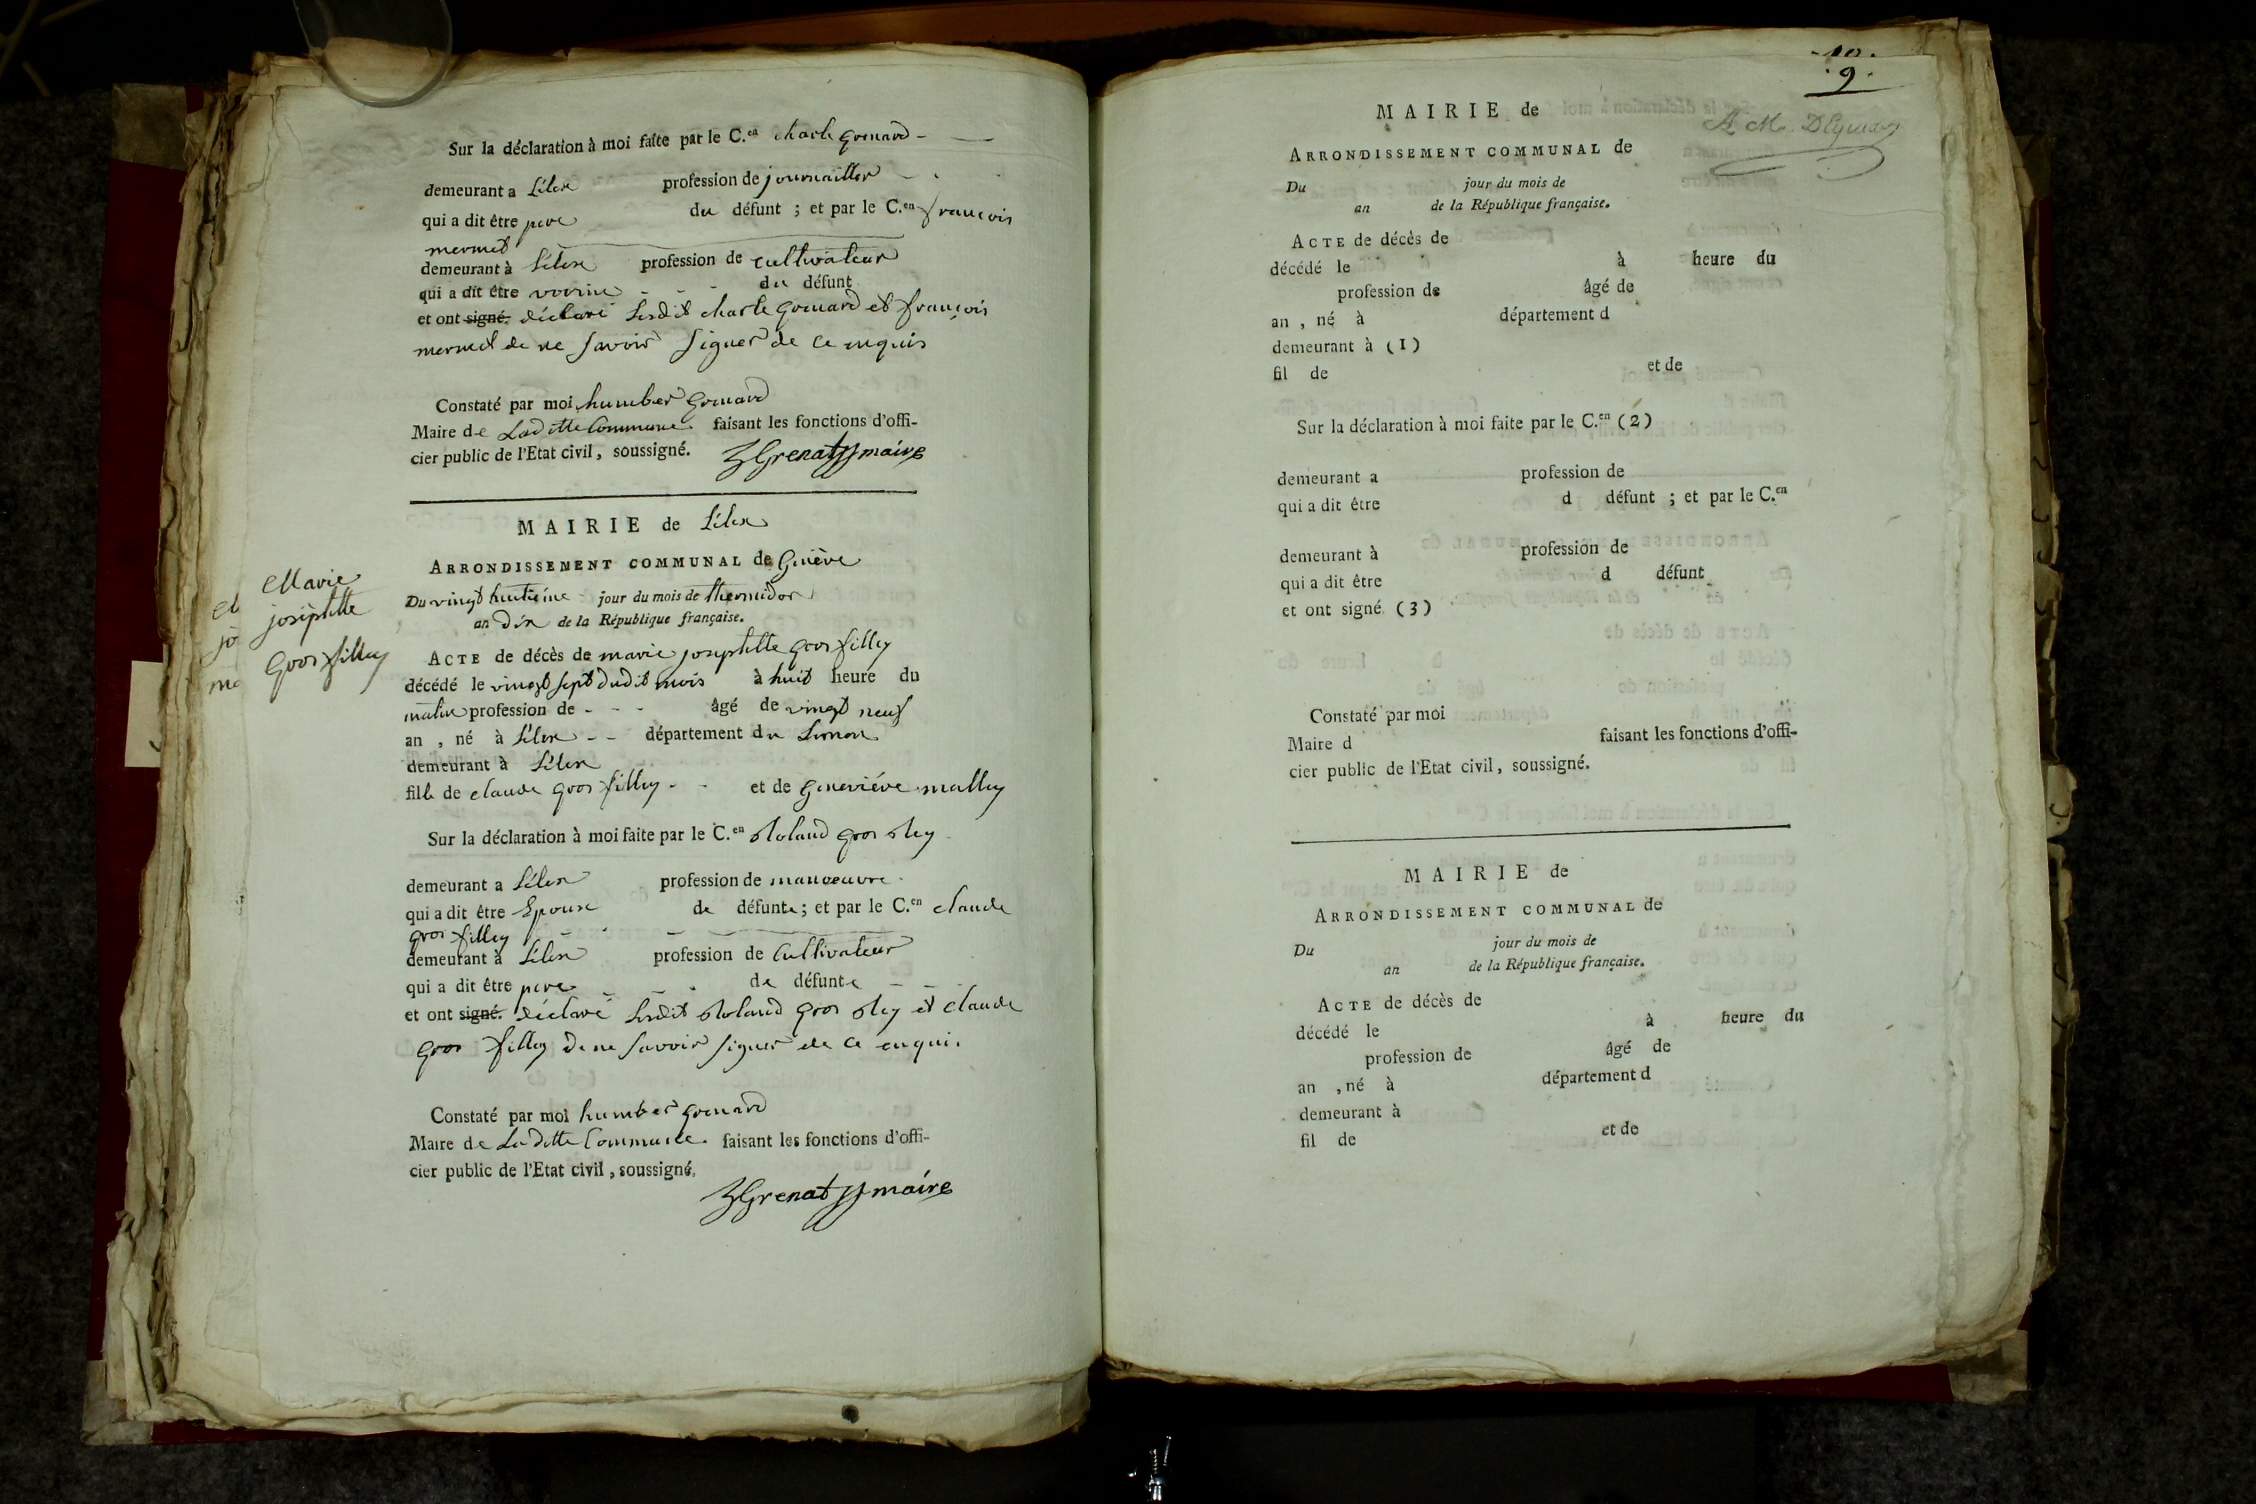 Sur la déclaration à moi faite par le C.en charle gronard
demeurant a Lélex profession de journaillier
qui a dit être pere du défunt ; et par le C.en françois
mermet
demeurant à Lélex profession de cultivateur
qui a dit être voisin du défunt
et ont signé. déclaré lesdit charle gronard et françois
mermet de ne savoir signer de ce enquis
Constaté par moi humber
Maire de Laditte Commune. faisant les fonctions d'offi-
cier public de l'Etat civil, soussigné.
Grenat maire
MAIRIE de Lélex
ARRONDISSEMENT COMMUNAL de Genève
Du vingt huitieme jour du mois de thermidor
an dix de la République française.
Marie
josephtte
Gros filley
ACTE de décès de marie josephtte gros filley
décédé le vingt sept dudit mois à huit heure du
matin profession de - - - âgé de vingt neuf
an , né à Lélex - - département du Leman
demeurant à Lélex
fille de claude gros filley - - et de Geneviéve malley
Sur la déclaration à moi faite par le C.en Roland gros
demeurant a Lélex profession de manoeuvre
qui a dit être Epoux de défunte ; et par le C.en claude
gros filley
demeurant à Lélex profession de Cultivateur
qui a dit être pere de défunte
et ont signé. déclaré lesdit Roland gros et claude
gros filley de ne savoir signer de ce enquis
Constaté par moi humber
Maire de Laditte Commune. faisant les fonctions d'offi-
cier public de l'Etat civil, soussigné,
Grenat maire
10.
9.
MAIRIE de
ARRONDISSEMENT COMMUNAL de
Du jour du mois de
an de la République française.
ACTE de décès de
décédé le à heure du
profession de âgé de
an , né à département d
demeurant à (1)
fil de et de
Sur la déclaration à moi faite par le C.en (2)
demeurant a profession de
qui a dit être d défunt ; et par le C.en
demeurant à profession de
qui a dit être d défunt
et ont signé (3)
Constaté par moi
Maire d faisant les fonctions d'offi-
cier public de l'Etat civil, soussigné.
MAIRIE de
ARRONDISSEMENT COMMUNAL de
Du jour du mois de
an de la République française.
ACTE de décès de
décédé le à heure du
profession de âgé de
an , né à département d
demeurant à
fil de et de